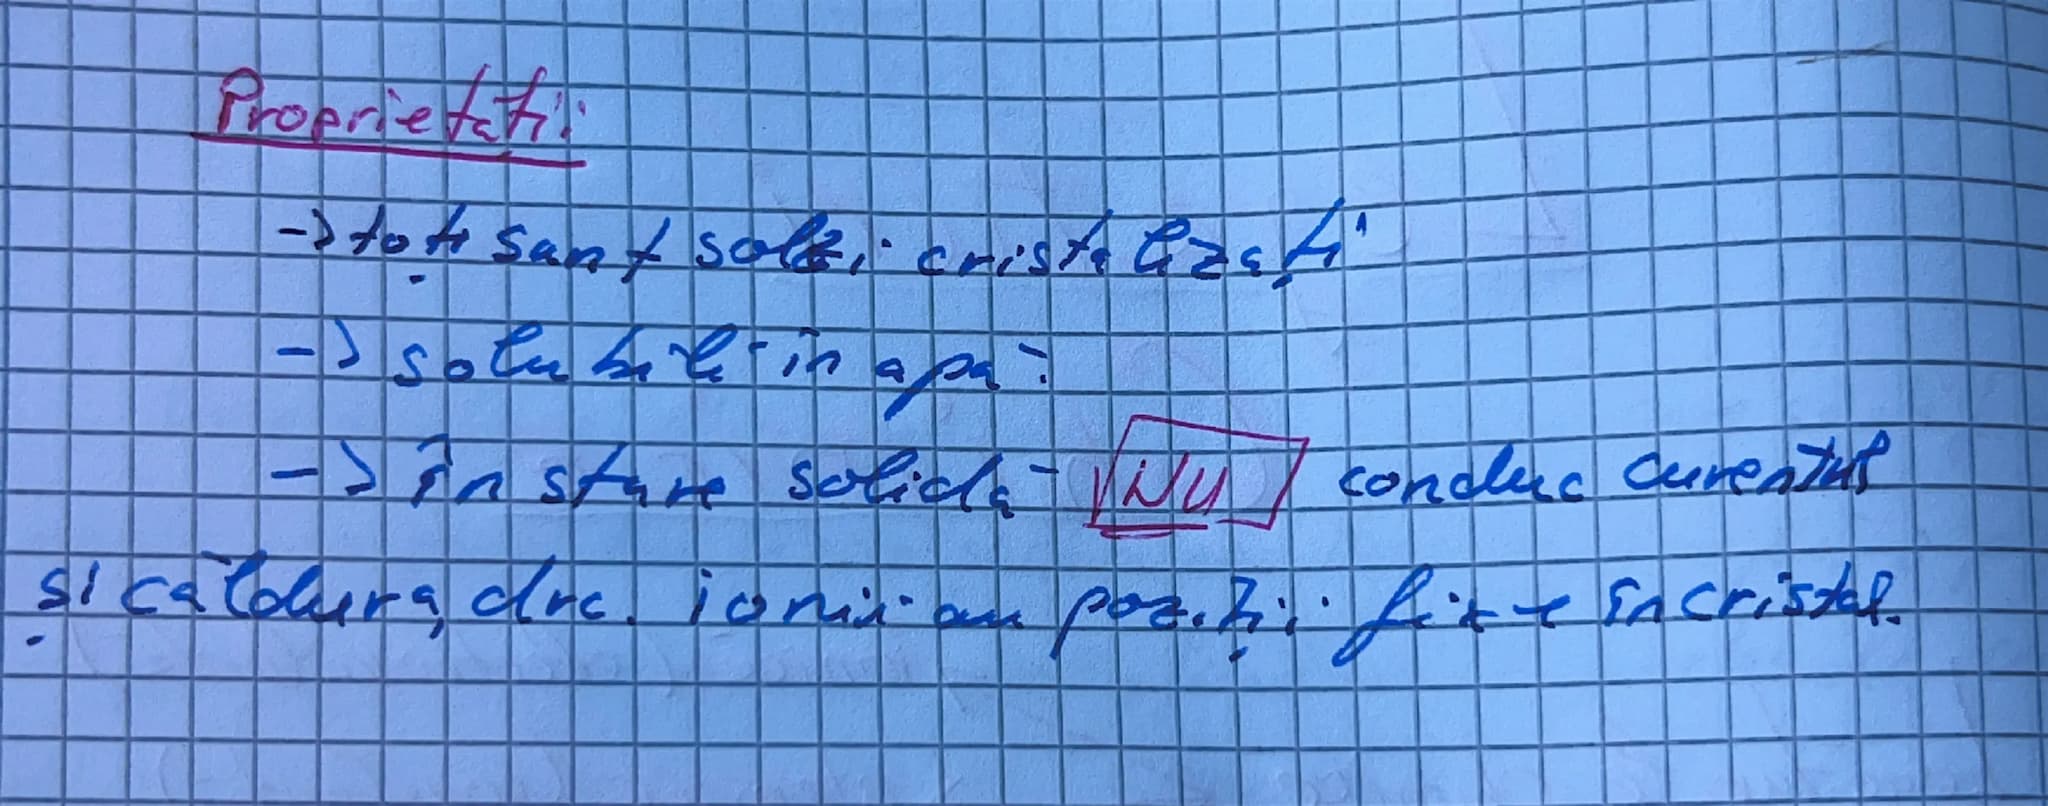 Proprietăți:
-> toți sunt solizi cristalizați
-> solubili în apă
-> în stare solidă NU conduc curentul
și căldura, drc. ionii au poziții fixe în cristal.